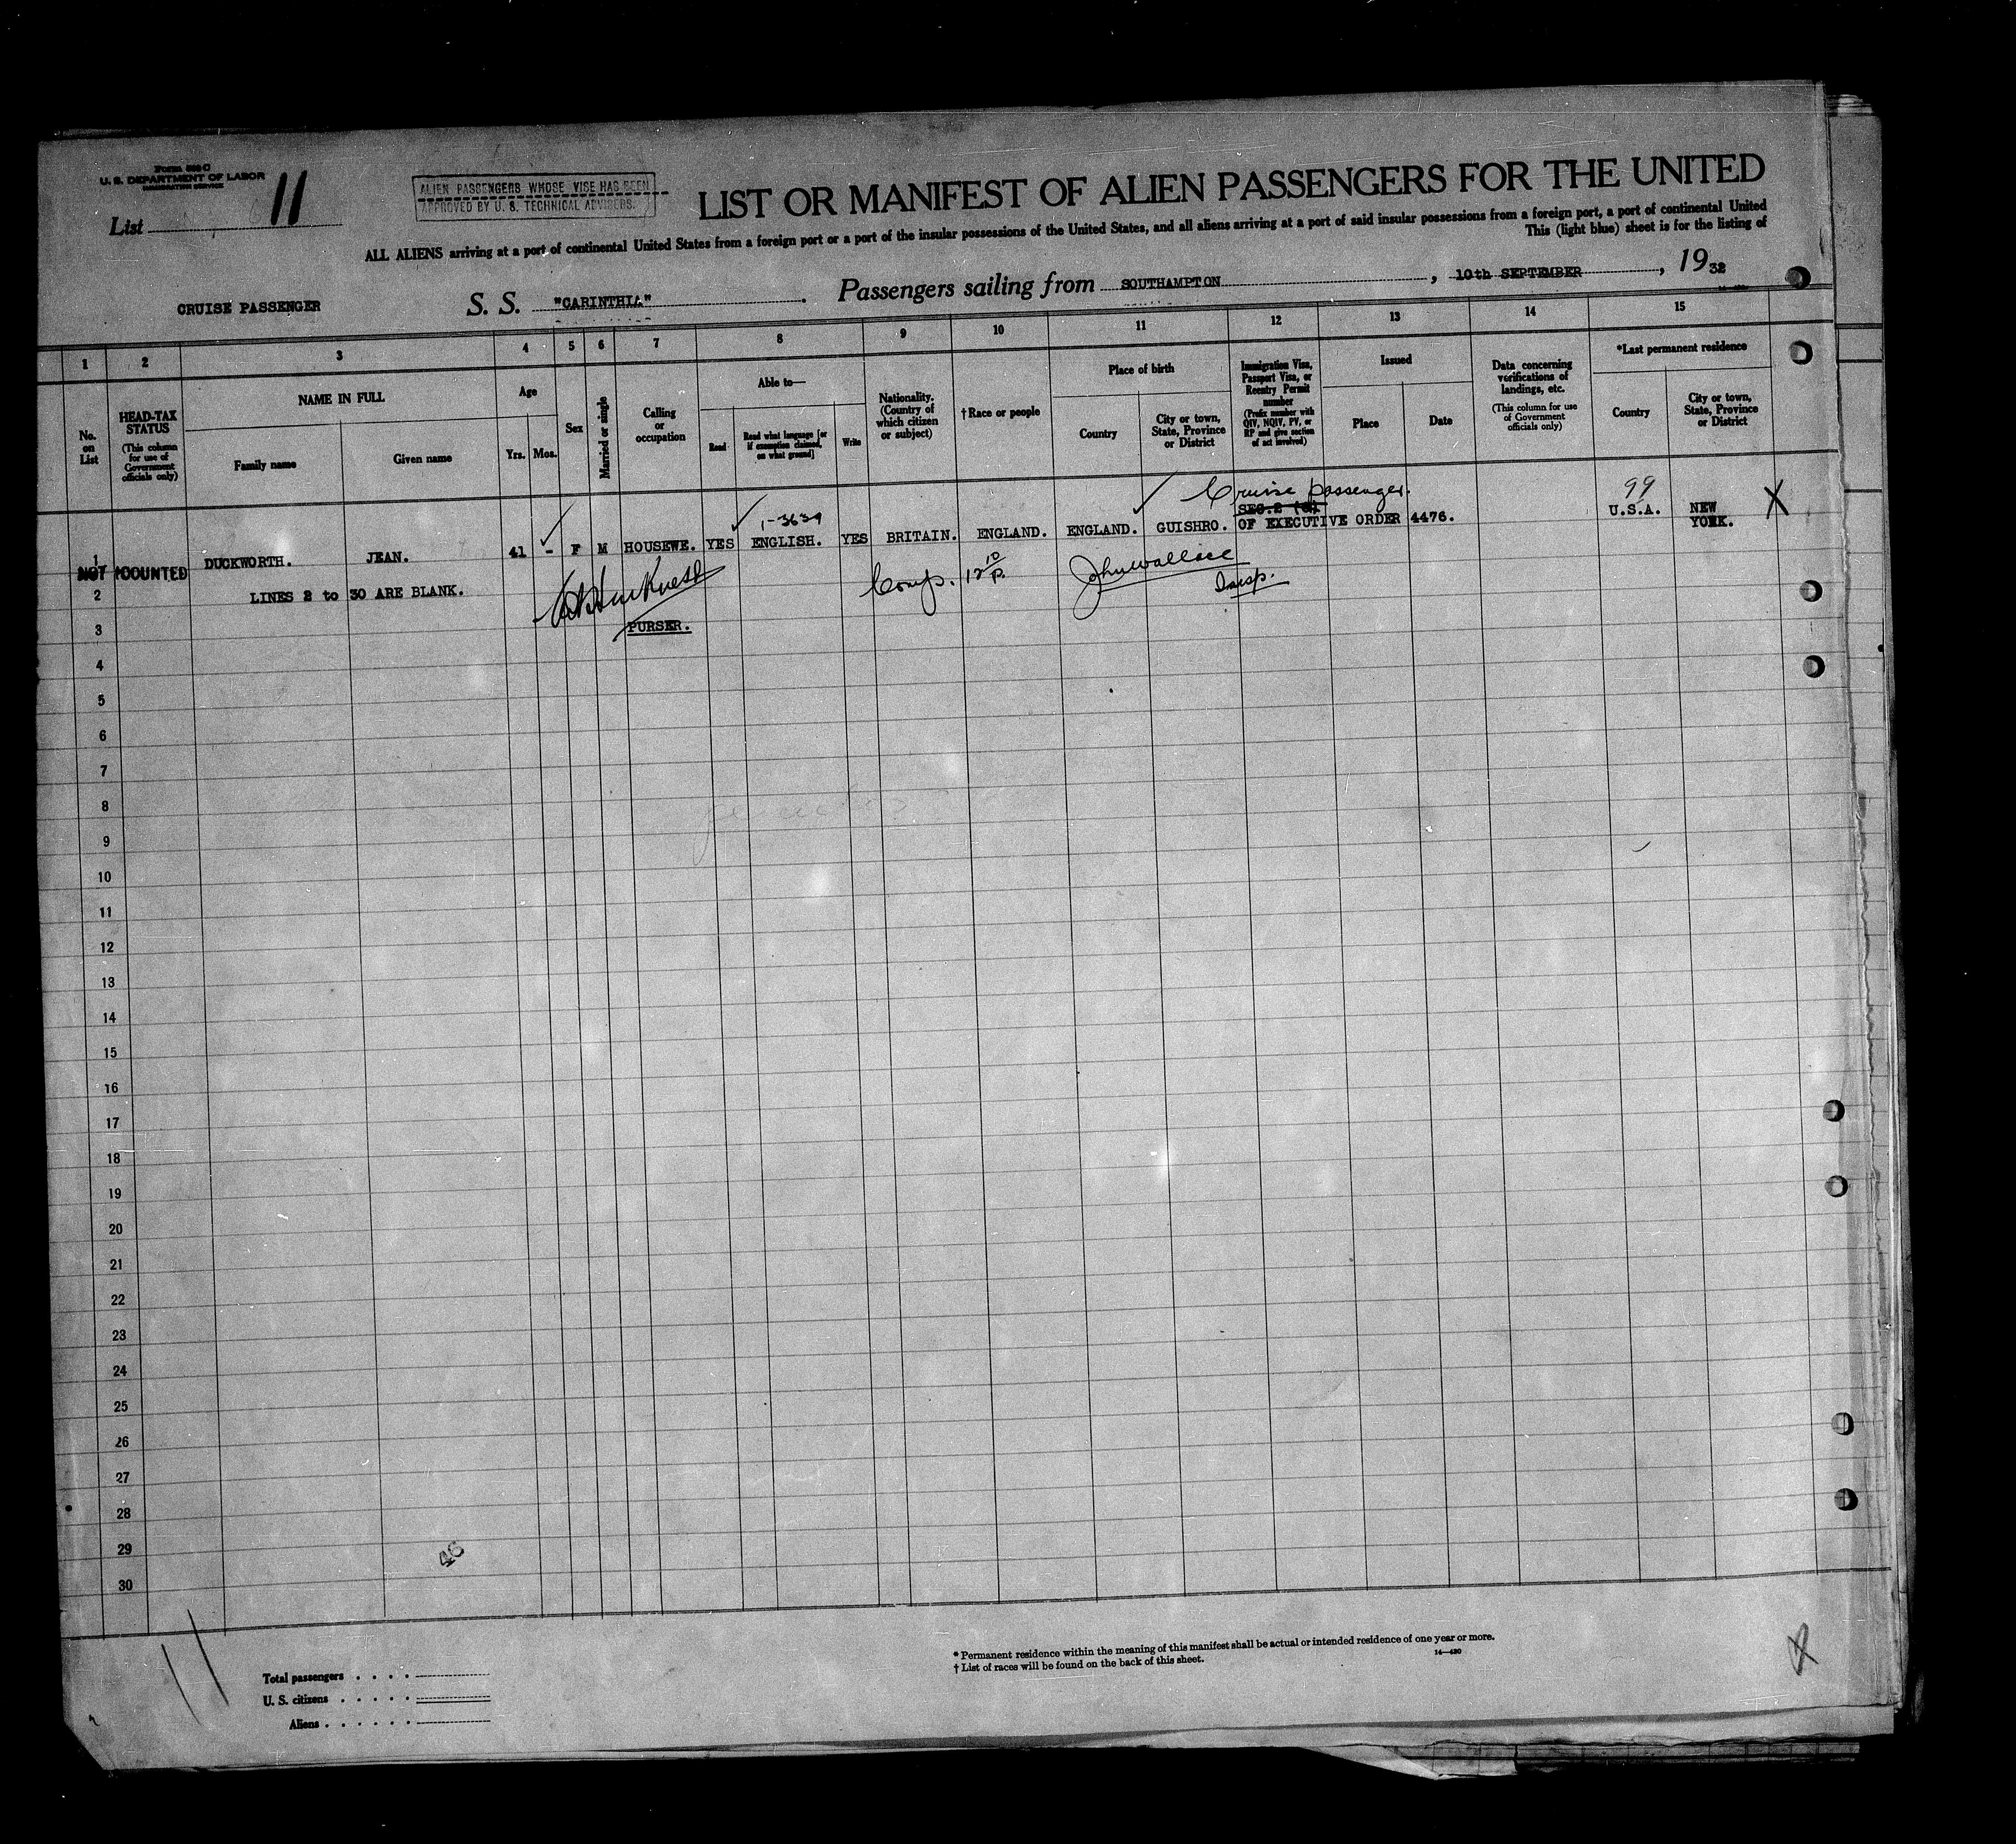 Form 500 C
U. S. DEPARTMENT OF LABOR
IMMIGRATION SERVICE
List 11
ALIEN PASSENGERS WHOSE VISE HAS BEEN
APPROVED BY U. S. TECHNICAL ADVISERS.
LIST OR MANIFEST OF ALIEN PASSENGERS FOR THE UNITED
ALL ALIENS arriving at a port of continental United States from a foreign port or a port of the insular possessions of the United States, and all aliens arriving at a port of said insular possessions from a foreign port, a port of continental United
This (light blue) sheet is for the listing of
CRUISE PASSENGER S. S. "CARINTHIA". Passengers sailing from SOUTHAMPTON, 10th SEPTEMBER, 1932
1 2 3 4 5 6 7 8 9 10 11 12 13 14 15
No. on List
HEAD-TAX STATUS
(This column for use of Government officials only)
NAME IN FULL
Family name
Given name
Age
Yrs. Mos.
Sex
Married or single
Calling or occupation
Able to—
Read
Read what language [or if exemption claimed, on what ground]
Write
Nationality. (Country of which citizen or subject)
†Race or people
Place of birth
Country
City or town, State, Province or District
Immigration Visa, Passport Visa, or Reentry Permit number
(Prefix number with QIV, NQIV, PV, or RP and give section of act involved)
Issued
Place
Date
Data concerning verifications of landings, etc.
(This column for use of Government officials only)
*Last permanent residence
Country
City or town, State, Province or District
Cruise passenger.
1-3639
SEC.2 (d)
99
1 DUCKWORTH. JEAN. 41 - F M HOUSEWE. YES ENGLISH. YES BRITAIN. ENGLAND. ENGLAND. GUISHRO. OF EXECUTIVE ORDER 4476. U.S.A. NEW YORK. X
NOT COUNTED
2 LINES 2 to 30 ARE BLANK.
Comp. John Wallace
Insp.
3 PURSER.
4
5
6
7
8
9
10
11
12
13
14
15
16
17
18
19
20
21
22
23
24
25
26
27
28
29
30
46
11
Total passengers
U. S. citizens
Aliens
* Permanent residence within the meaning of this manifest shall be actual or intended residence of one year or more.
† List of races will be found on the back of this sheet.
14—420